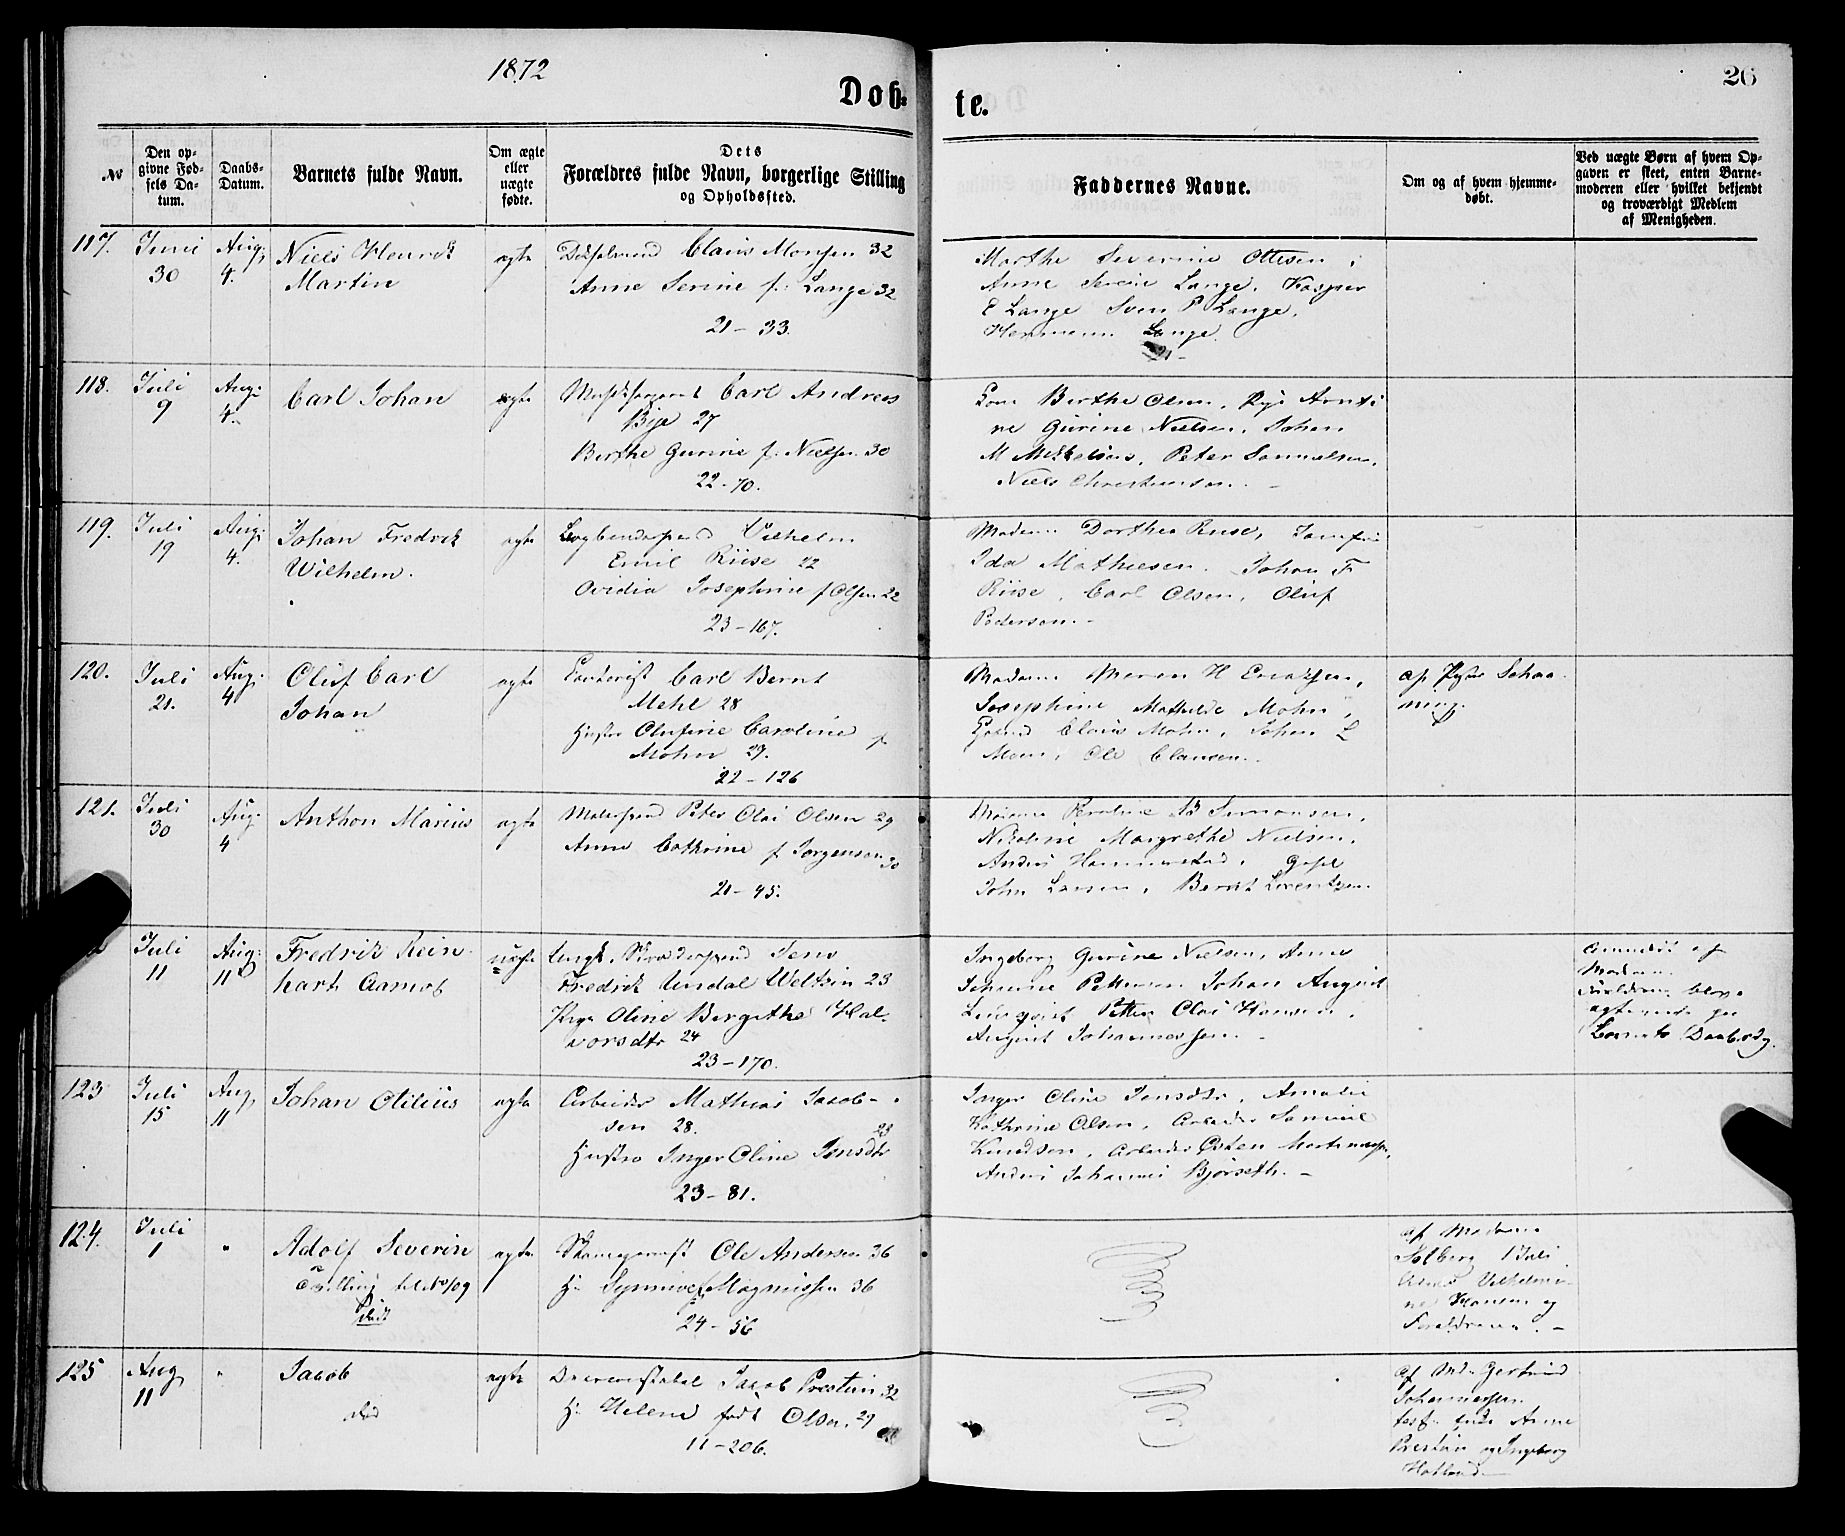 1872
26
Døb-
te.
№
Den op-
givne Fød-
sels Da-
tum.
Daabs-
Datum.
Barnets fulde Navn.
Om ægte
eller
uægte
fødte.
Dets
Forældres fulde Navn, borgerlige Stilling
og Opholdssted.
Faddernes Navne.
Om og af hvem hjemme-
døbt.
Ved uægte Børn af hvem Op-
gaven er skeet, enten Barne-
moderen eller hvilket bekjendt
og troværdigt Medlem
af Menigheden.
117.
Juni
30
Aug:
4.
Niels Henrik
Martin
ægte
Claus Monsen 32
Anne Serine f. Lange 32
21 – 33.
Marthe Severine Ottesen,
Anne Serine Lange, Kasper
E Lange Sven P Lange,
Hermann Lange.
118.
Juli
9
Aug:
4.
Carl Johan
ægte
Carl Andreas
Bye 27
Berthe Gurine f. Nielsen 30
22 - 70.
Kone Berthe Olsen, Pige Arnti
ne Gurine Nielsen, Johan
M Mikkelsen, Peter Samuelsen,
Niels Christensen. –
119.
Juli
19
Aug:
4.
Johan Fredrik
Wilhelm.
ægte
Vilhelm
Emil Riise 22
Ovidia Josephine f Olsen 22
23 – 167.
Madam Dorthea Riise, Jomfru
Ida Mathiesen. Johan F
Riise, Carl Olsen, Oluf
Pedersen. –
120.
Juli
21.
Aug:
4
Oluf Carl
Johan
ægte
Carl Bernt
Mehl 28
Hustru Olufine Caroline f
Mohn 29.
22 – 126
Madam Maren H Ericksen,
Josephine Mathilde Mohn,
Claus Mohn, Johan L
Ole Clausen.
af Pastor Schaa
ning.
121.
Juli
30
Aug:
4
Anthon Marius
ægte
Malersvend Peter Olai Olsen 29
Anne Cathrine f Jorgensen 30
21 – 45.
Madam B Simonsen,
Nicoline Margrethe Nielsen,
Anders Hammerstad,
John Larsen, Bernt Lorentzen.
Juli
11
Aug:
11
Fredrik Rein
hart Aamot
uægte
Ungk. Skrædersvend Jens
Fredrik Undal Weltzin 23
Pige Oline Bergithe Hal-
vorsdtr 24
23 – 170.
Ingeborg Gurine Nielsen, Anne
Johanne Pettersen Johan August
Petter Olai Hansen,
August Johannessen. –
Anmeldt af
Moderen.
Forældrene bleve
ægteviede paa
Barnets Daabsdag.
123
Juli
15
Aug
11
Johan Otilius
ægte
Arbeider Mathias Jacob-
sen 28.
23
Hustru Inger Oline Jensdtr
23 – 81.
Inger Oline Jensdtr, Amalie
Kathrine Olsen, Arbeider Samuel
Knudsen, Arbeider Østen Martinussen,
Anders Johannes Bjørseth. –
124.
Juli
1
"
Adolf Severin
Tvilling til No 109
død
ægte
Ole Andersen 36
H: Synnive f Magnussen 36
24 – 56
af Madam
Solberg 1 Juli
Vilhelmi-
ne Hansen og
Forældrene. –
125
Aug
11
"
Jacob
død
ægte
Jacob Prestun 32
H: Helene født Olsen 29
11 – 206.
af Md. Gertrud
Johannessen
test. Anne
Prestun og Ingeborg
Hatland. –